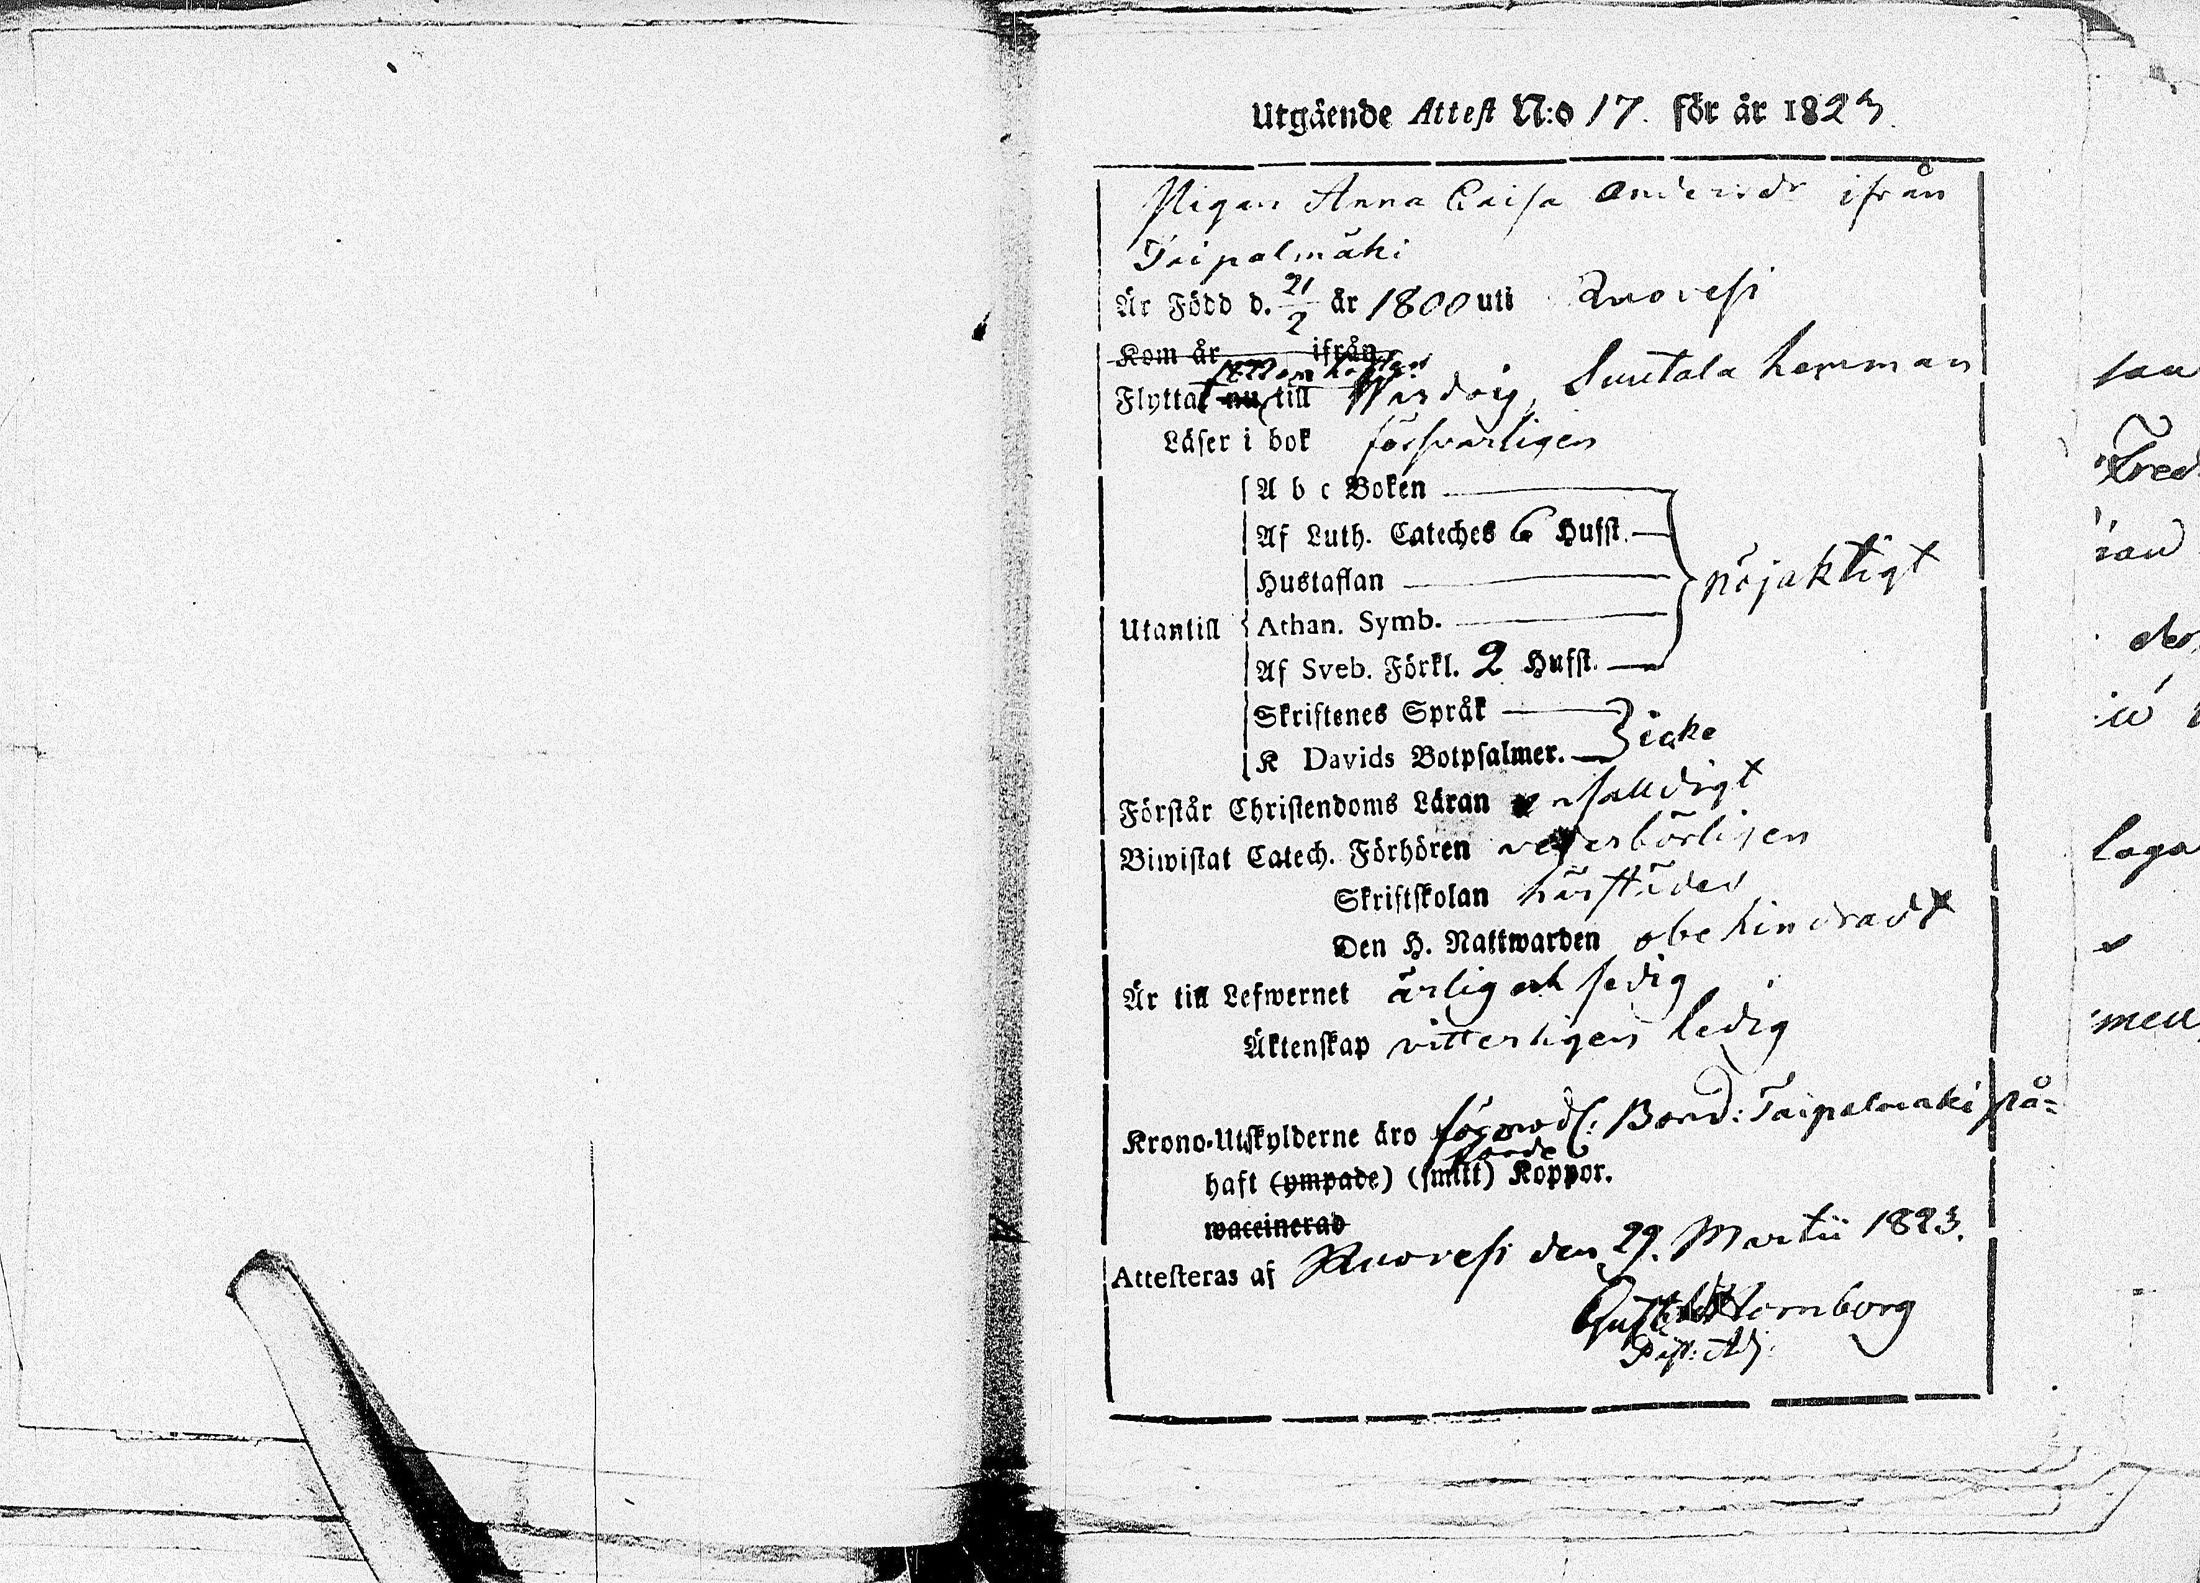 Utgäende Attest N:o 17. för år 1823.
Pigan Anna Caisa Andersdr ifrån
Taipalmäki
Är Född d. 21/2 år 1800 uti Ruovesi
Kom år ifrån
1822 om hösten
Flyttat nu till Suutala hemman
Läser i bok försvarligen
A b c Boken
Af Luth. Cateches 6 Hufst.
Hustaflan
nöjaktigt
Utantill Athan. Symb.
Af Sveb. Förkl. 2 Hufst.
Skriftenes Språk
icke
K Davids Botpsalmer.
Förstår Christendoms Läran enfalldigt
Biwistat Catech. Förhören vederbörligen
Skriftskolan härstädes
Den H. Nattwarden obehindradt
Är till Lefwernet ärlig och sedig
Äktenskap vitterligen ledig
Krono-Utskylderne äro förmodl: Bond: Taipalmäki på=
förde
haft (ympade) (smitt) Koppor.
waccinerad
Attesteras af Ruovesi den 29. Martii 1823.
Hornborg
Past: Adj.
sau
Fred
laga
men